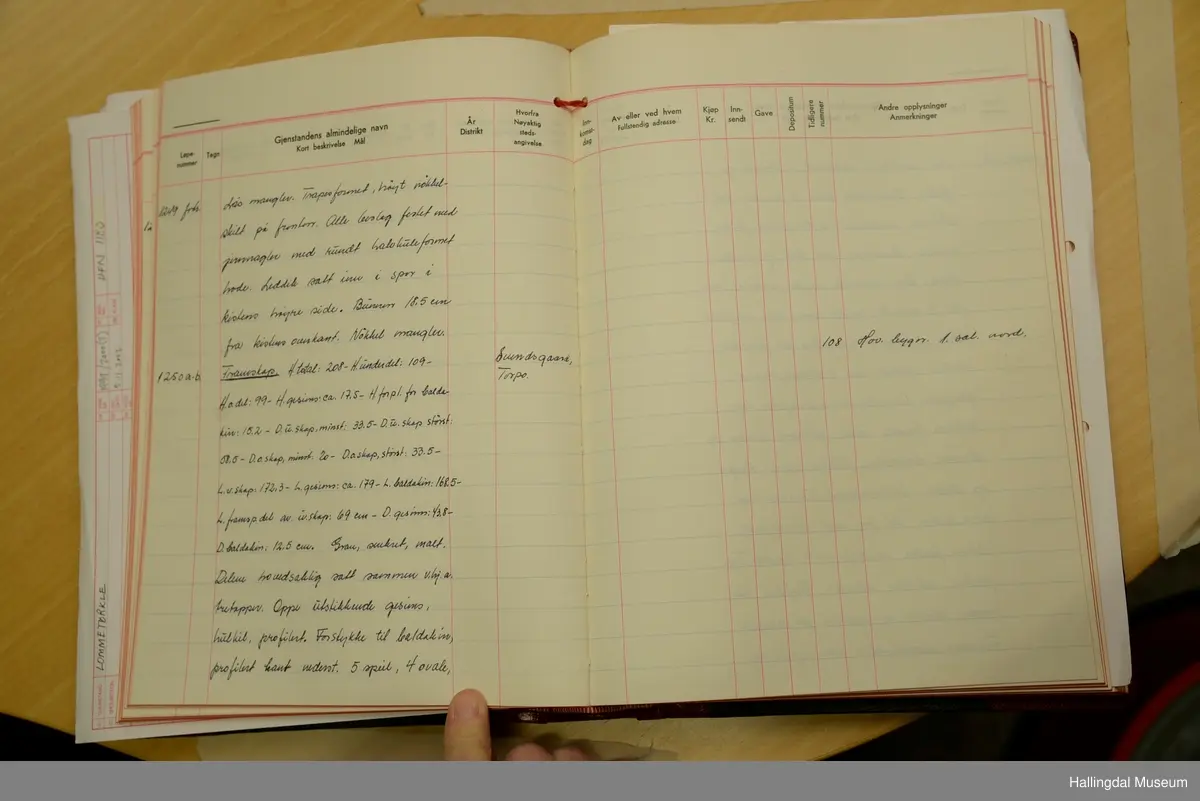 Løpe-
nummer
Tegn
Gjenstandens almindelige navn
Kort beskrivelse Mål
År
Distrikt
Hvorfra
Nøyaktig
steds-
angivelse
Inn-
komst-
dag
Av eller ved hvem
Fullstendig adresse
Kjøp
Kr.
Inn-
sendt
Gave
Depositum
Tidligere
nummer
Andre opplysninger
Anmerkninger
1249 forts.
Lås mangler. Trapesformet, høyt nökkel-
skilt på fronten. Alle beslag festet med
jernnagler med rundt halvkuleformet
hode. Leddik satt inn i spor i
kistens høyre side. Bunnen 18.5 cm
fra kistens overkant. Nökkel mangler.
1250 a-b
Framskap. H total: 208 - H. underdel: 109 -
H.o.del: 99 - H. gesims: ca. 17.5 - H forpl. for balda-
kin: 15.2 - D.u.skap, minst: 33.5 - D.u. skap störst:
58.5 - D.o.skap, minst: 20 - D.o.skap, störst: 33.5 -
L.u.skap: 172,3 - L. gesims: ca. 179 - L. baldakin: 168.5 -
L. framsp. del av u.skap: 69 cm - D. gesims: 43.8 -
D. baldakin: 12.5 cm. Gran, snekret, malt.
Delene hovedsaklig satt sammen v.hj.a.
tretapper. Oppe utstikkende gesims,
hulkil, profilert. Forstykke til baldakin,
profilert kant nederst. 5 speil, 4 ovale,
Svendsgaard,
Torpo.
108 Hov. bygn. 1. sal. nord.
LOMMETØRKLE
HFN 1120
Hallingdal Museum